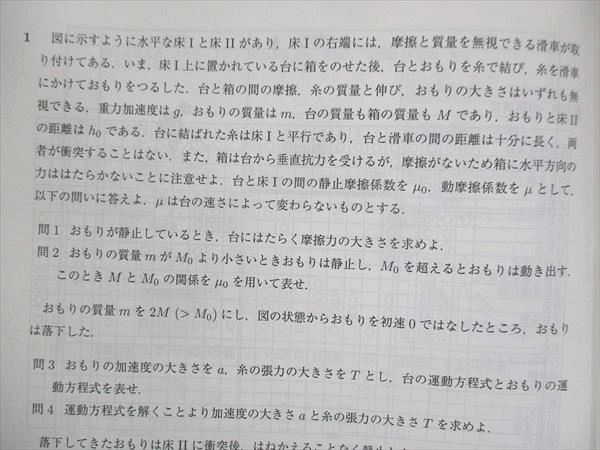 1 図に示すように水平な床 I と床 II があり，床 I の右端には，摩擦と質量を無視できる滑車が取
り付けてある．いま，床 I 上に置かれている台に箱をのせた後，台とおもりを糸で結び，糸を滑車
にかけておもりをつるした．台と箱の間の摩擦，糸の質量と伸び，おもりの大きさはいずれも無
視できる．重力加速度は g，おもりの質量は m，台の質量も箱の質量も M であり，おもりと床 II
の距離は h₀ である．台に結ばれた糸は床 I と平行であり，台と滑車の間の距離は十分に長く，両
者が衝突することはない．また，箱は台から垂直抗力を受けるが，摩擦がないため箱に水平方向の
力ははたらかないことに注意せよ．台と床 I の間の静止摩擦係数を μ₀，動摩擦係数を μ として，
以下の問いに答えよ．μ は台の速さによって変わらないものとする．
問 1 おもりが静止しているとき，台にはたらく摩擦力の大きさを求めよ．
問 2 おもりの質量 m が M₀ より小さいときおもりは静止し，M₀ を超えるとおもりは動き出す．
このとき M と M₀ の関係を μ₀ を用いて表せ．
おもりの質量 m を 2M (> M₀) にし，図の状態からおもりを初速 0 ではなしたところ，おもり
は落下した．
問 3 おもりの加速度の大きさを a，糸の張力の大きさを T とし，台の運動方程式とおもりの運
動方程式を表せ．
問 4 運動方程式を解くことより加速度の大きさ a と糸の張力の大きさ T を求めよ．
落下してきたおもりは床 II に衝突後，はねかえることなく静止し